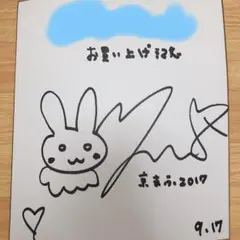 お買い上げ記念
京まふ2017
9.17